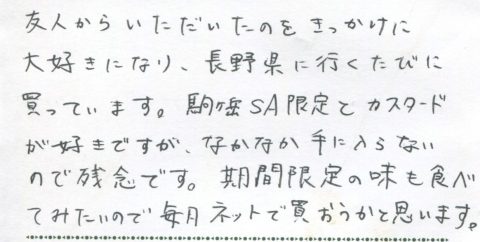 友人からいただいたのをきっかけに
大好きになり、長野県に行くたびに
買っています。駒ヶ岳SA限定とカスタード
が好きですが、なかなか手に入らない
ので残念です。期間限定の味も食べ
てみたいので毎月ネットで買おうかと思います。